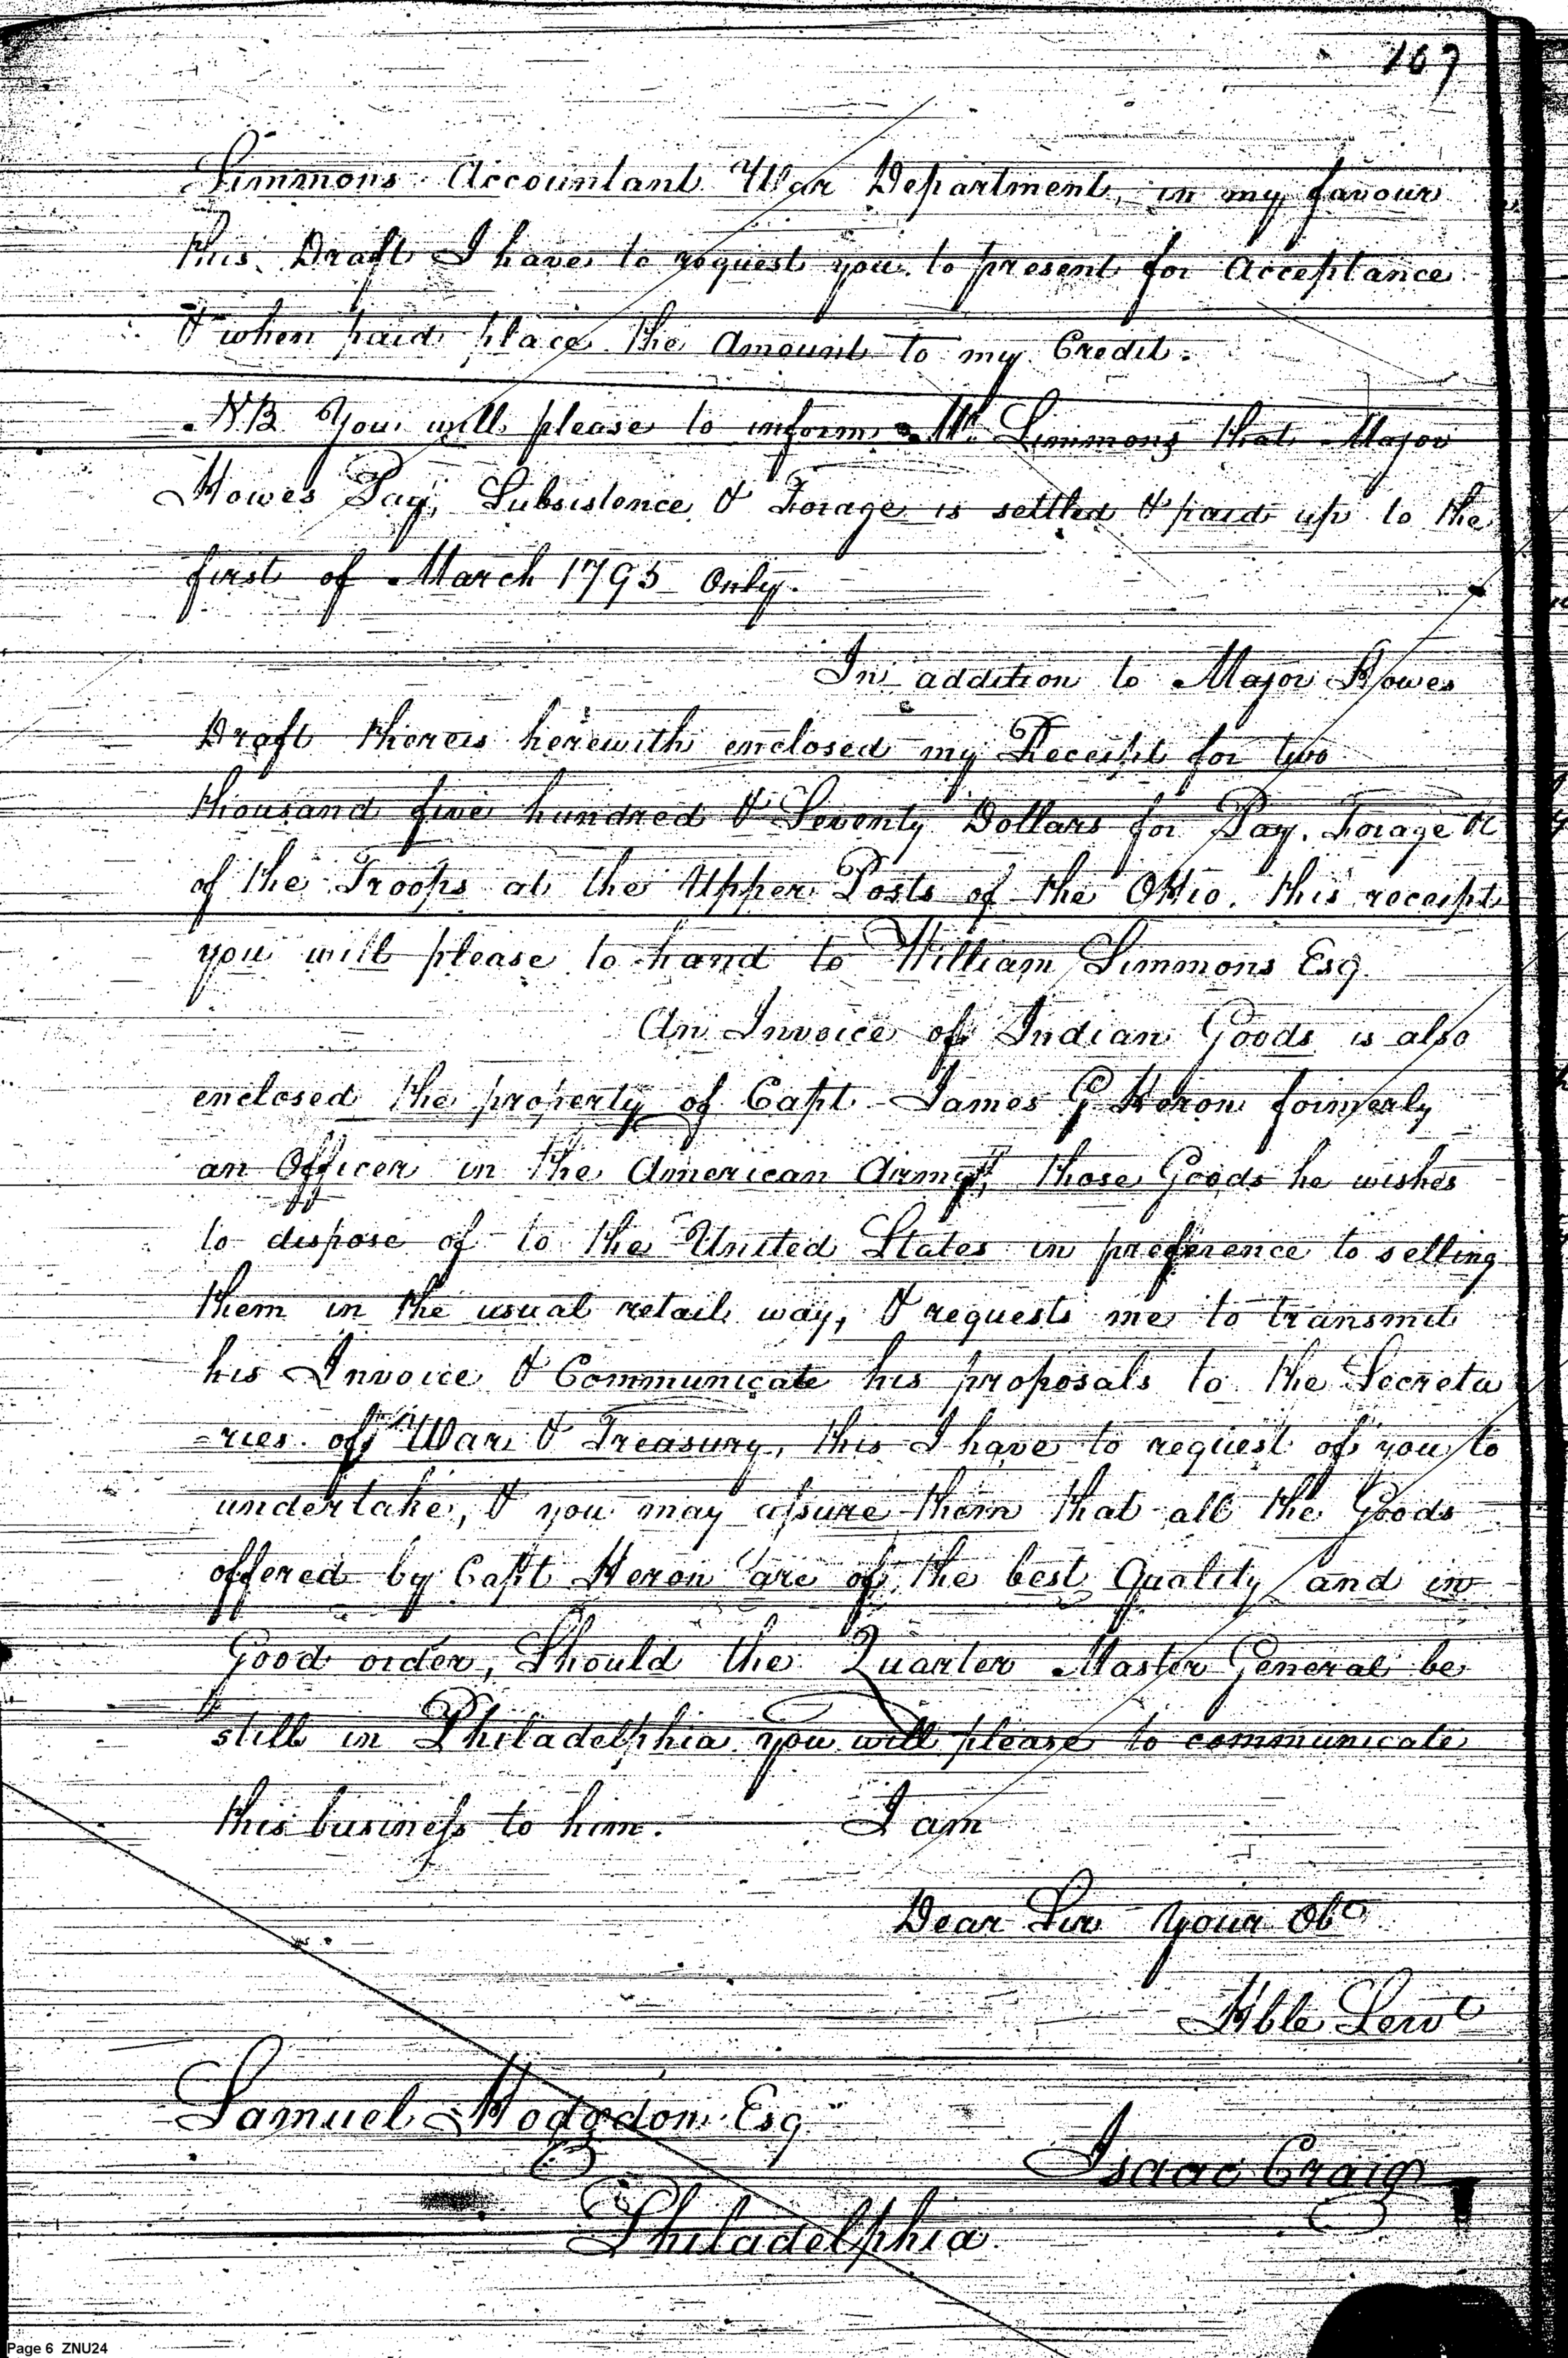 107
Simmons Accountant War Department, in my favour
this Draft I have to request you to present for Acceptance
& when paid place the Amount to my Credit.
NB You will please to inform Mr. Simmons that Major
Howes Pay, Subsistence & Forage is settled & paid up to the
first of March 1795 Only.
In addition to Major Howes
Draft thereis herewith enclosed my Receipt for two
thousand five hundred & Seventy Dollars for Pay, Forage &c
of the Troops at the Upper Posts of the Ohio. this receipt
you will please to hand to William Simmons Esq
An Invoice of Indian Goods is also
enclosed the property of Capt James G Heron formerly
an Officer in the American Army, those Goods he wishes
to dispose of to the United States in preference to selling
them in the usual retail way, & requests me to transmit
his Invoice & Communicate his proposals to the Secreta
=ries of War & Treasury, this I have to request of you to
undertake, & you may assure them that all the Goods
offered by Capt Heron are of the best Quality and in
Good order, Should the Quarter Master General be
still in Philadelphia you will please to communicate
this business to him. I am
Dear Sir your Obt
Hble Servt
Samuel Hodgdon Esq
Isaac Craig
Philadelphia
Page 6 ZNU24